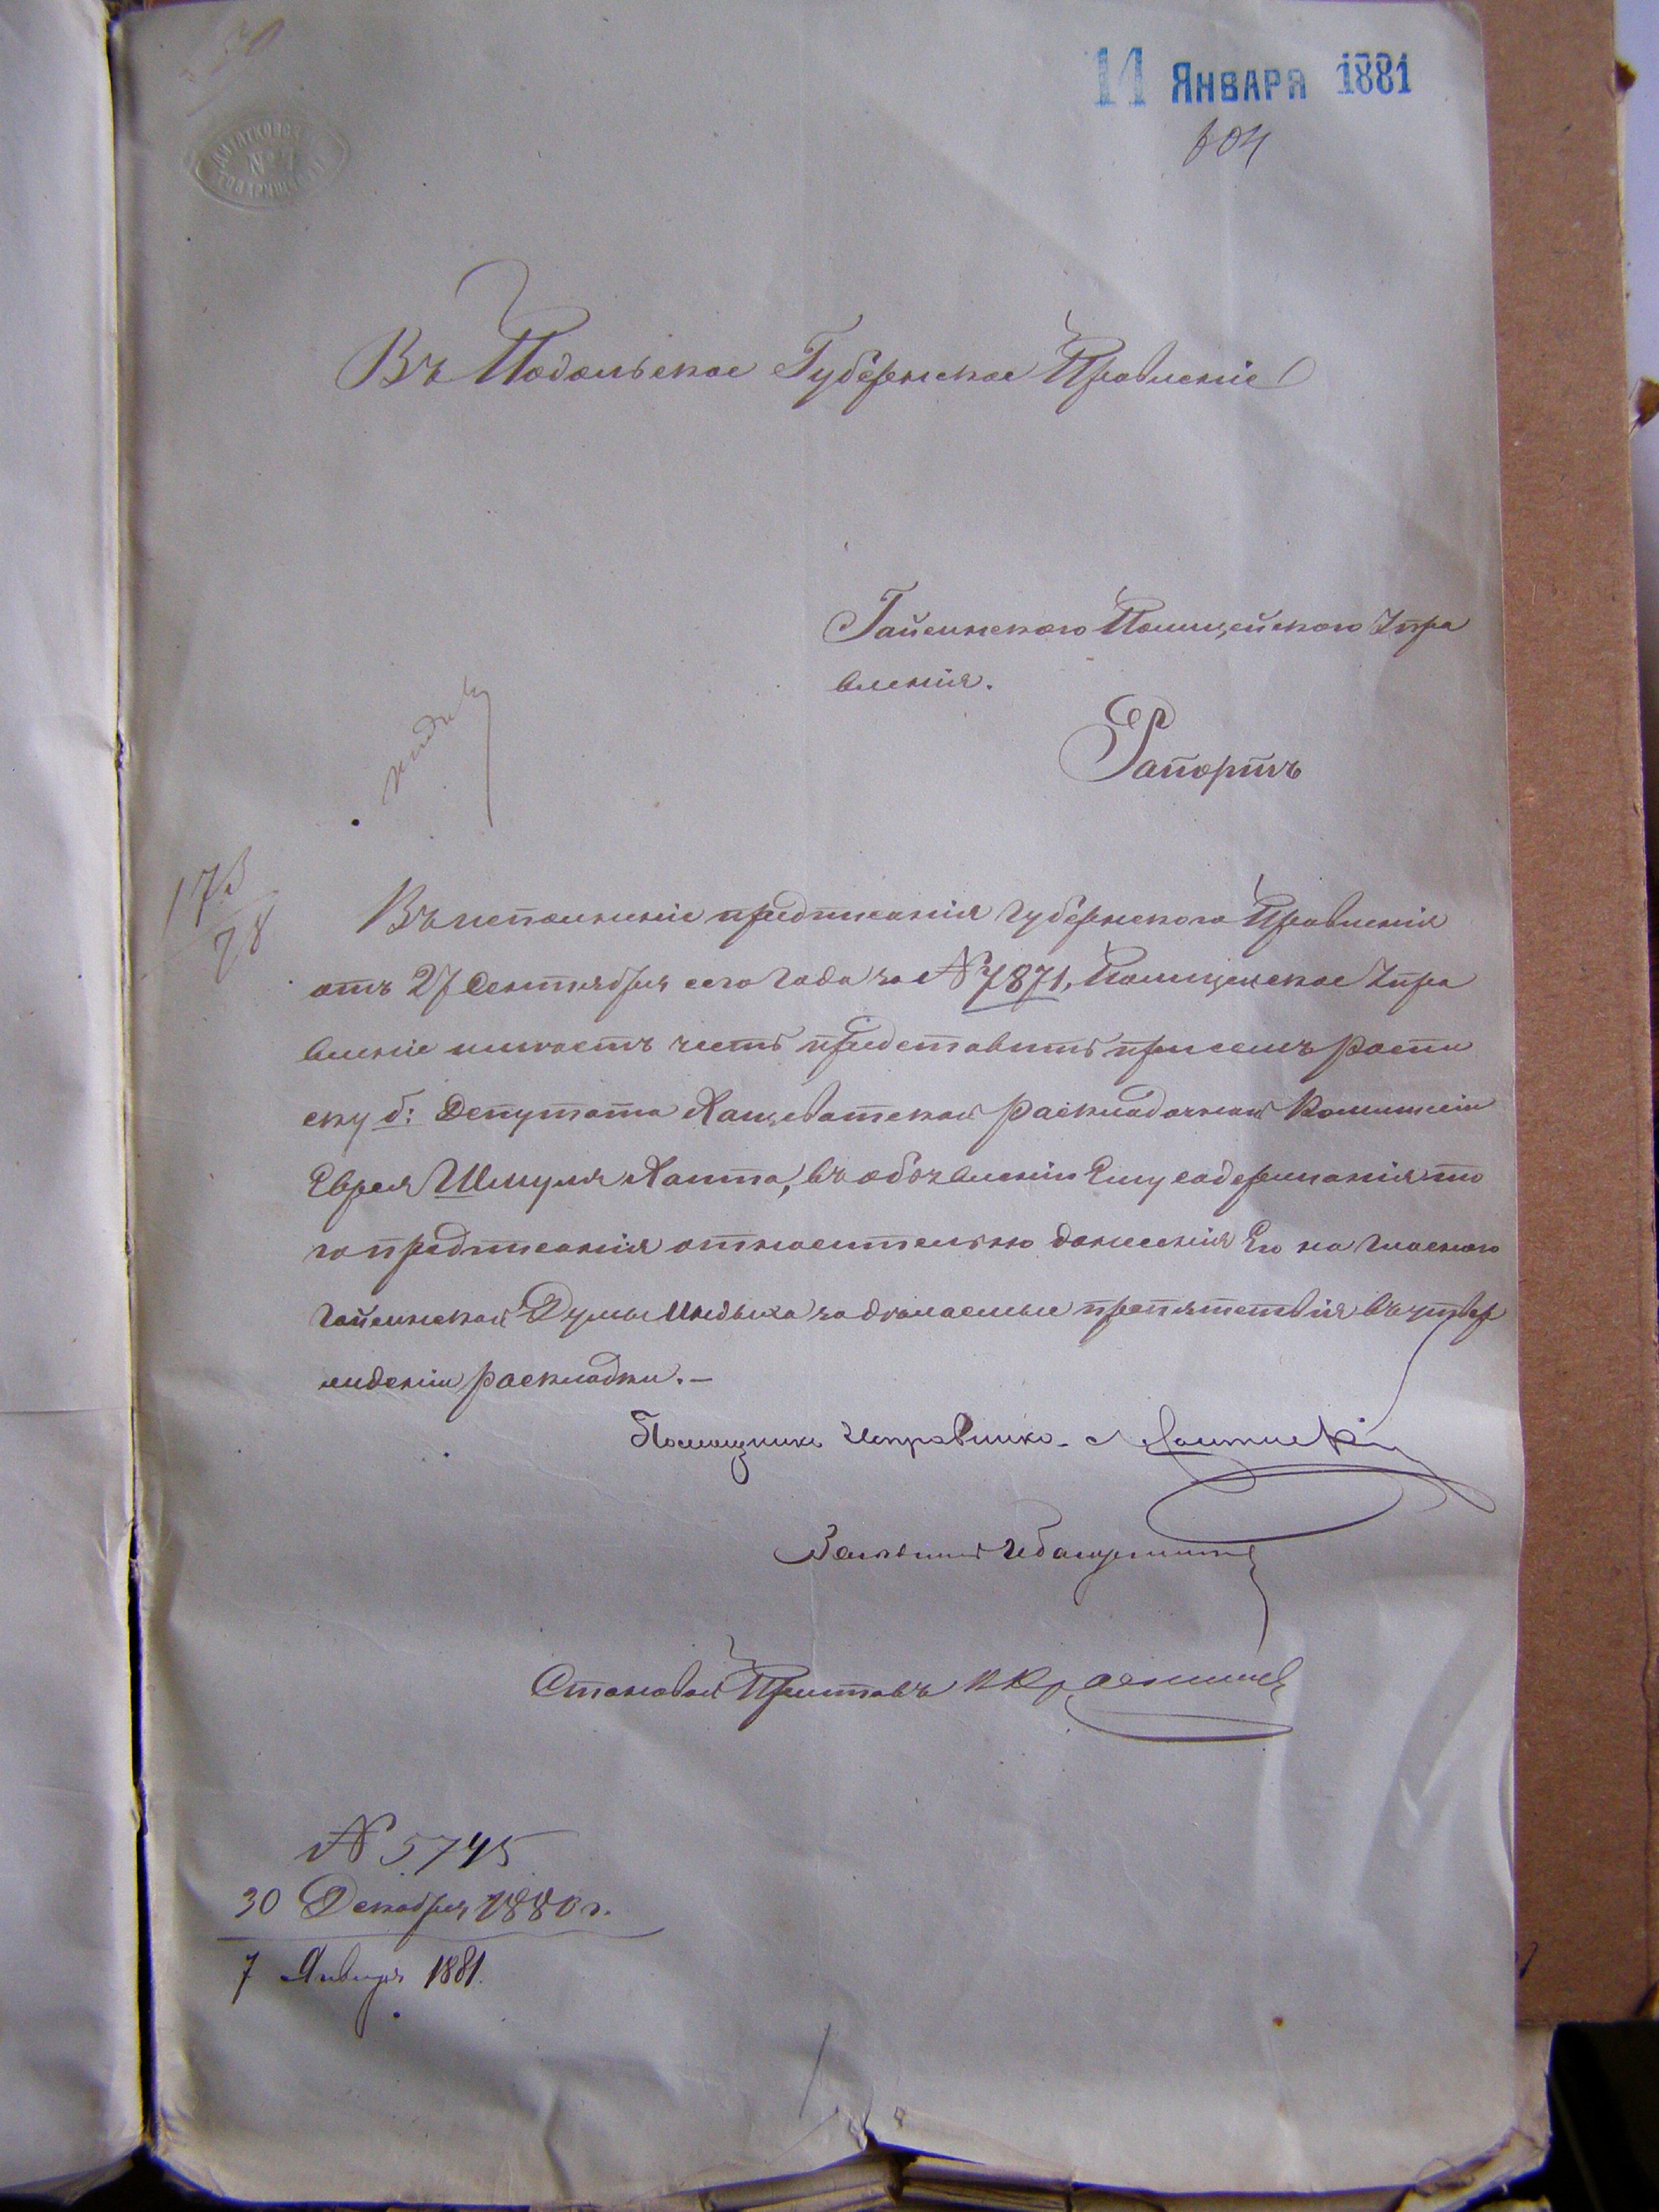 11 Января 1881
604
Въ Подольское Губернское Правленіе
Гайсинского Полицейского Упра
вленія.
Рапортъ
Въ исполненіе предписанія Губернского Правленія
отъ 27 Сентября сего года за № 7871, Полицейское Упра
вленіе имѣетъ честь представить при семъ распи
ску б: Депутата Хащеватской раскладочной Коммисіи
Еврея Шмуля Хаита, въ объявленіи Ему содержанія то
го предписанія относительно донесенія Его на гласного
Гайсинской Думы за дѣлаемые препятствія въ утвер
жденіи раскладки.—
Помощникъ Исправника
Становой Приставъ
№ 5745
30 Декабря 1880 г.
7 Января 1881.